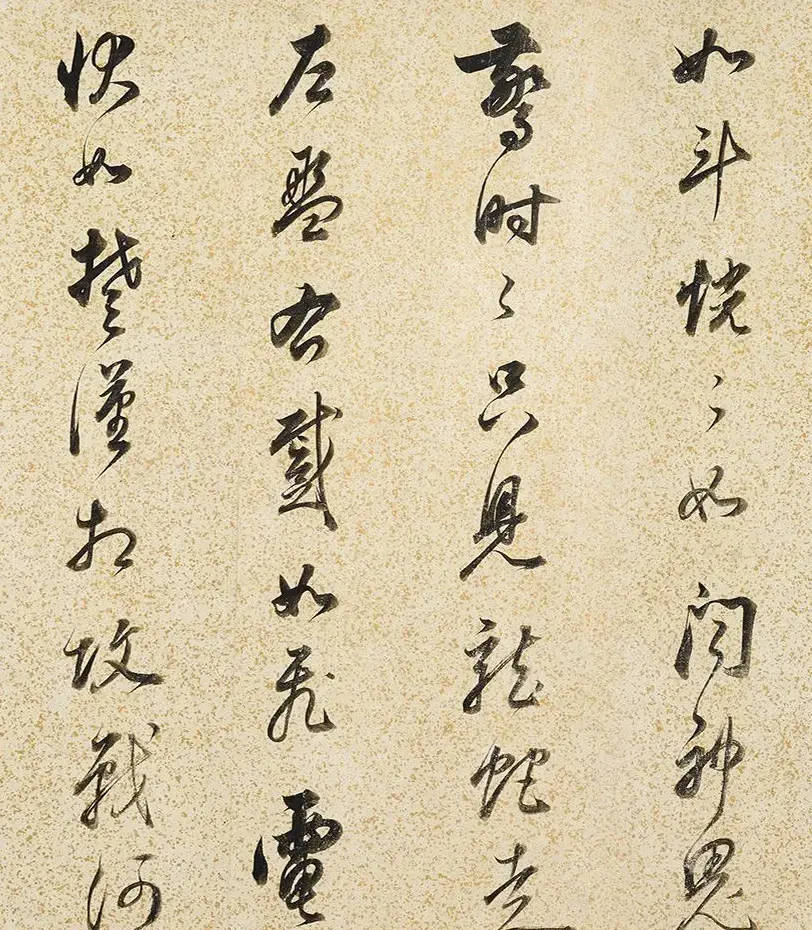 如斗恍〻如闻神鬼
驚时〻只見龍蛇走
左盤右蹙如飛電
状如楚漢相攻戰河